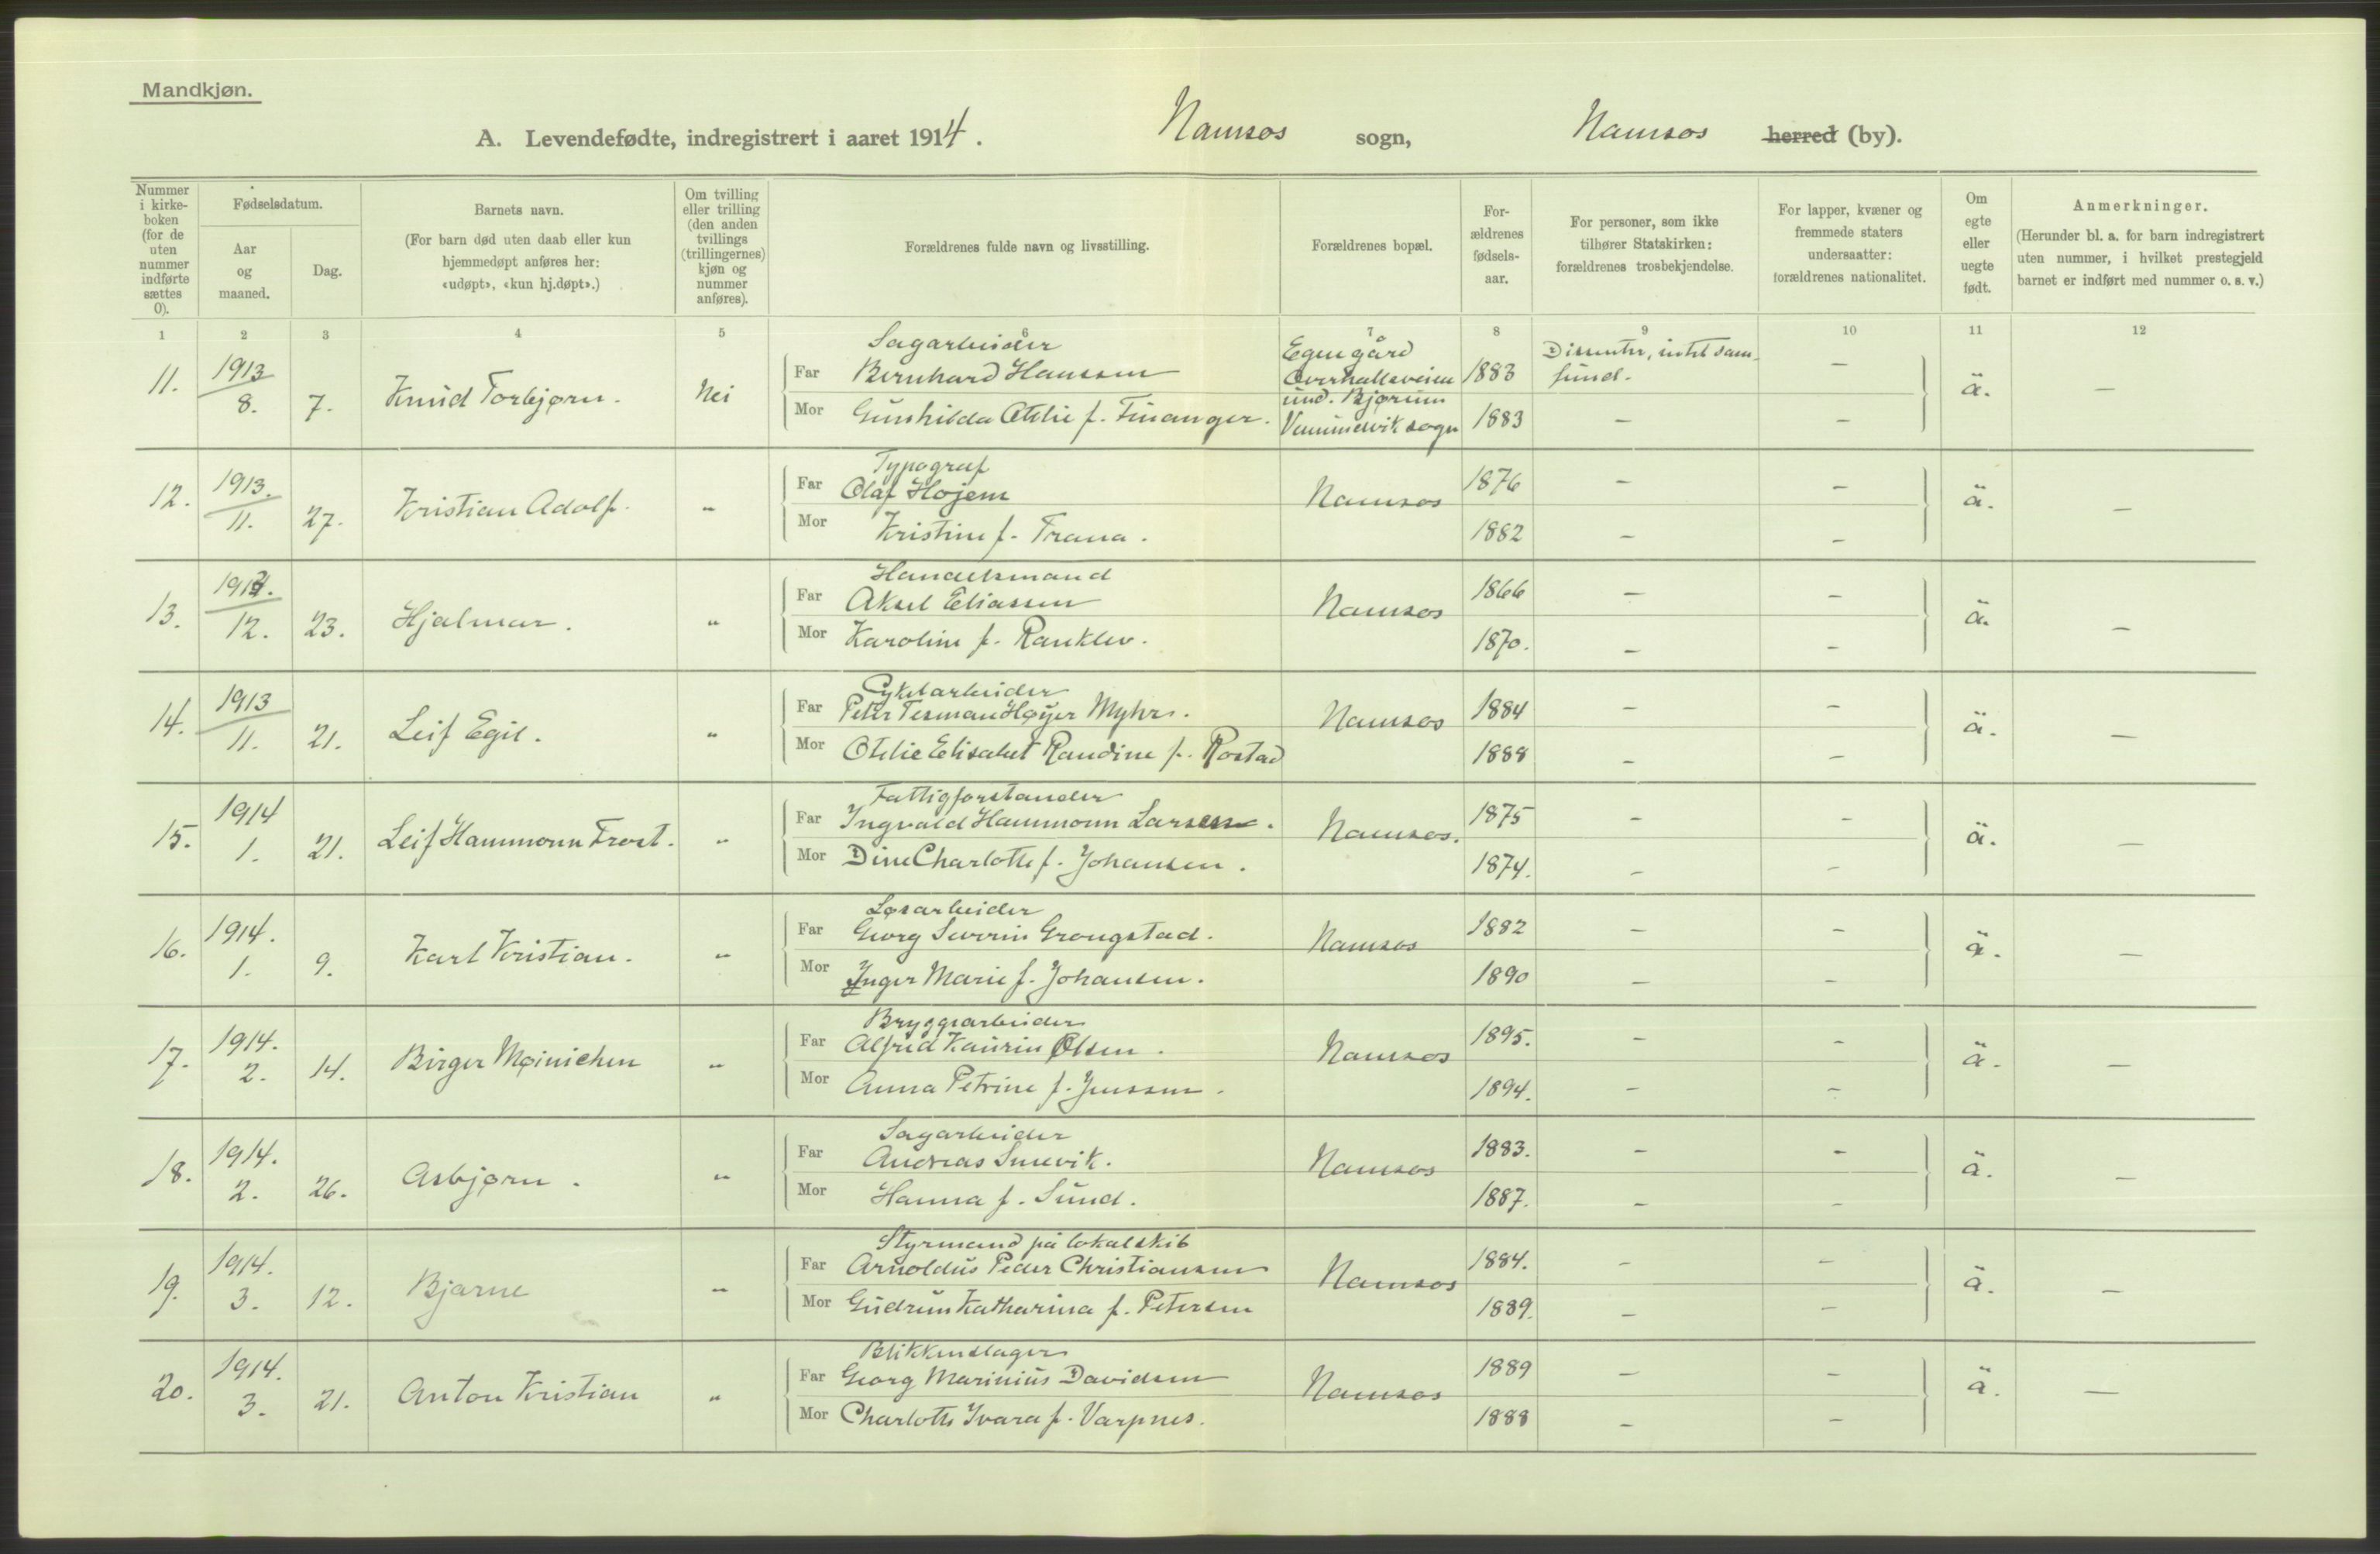 Mandkjøn.
A. Levendefødte, indregistrert i aaret 1914. Namsos sogn, Namsos herred (by).
Nummer i kirke-boken (for de uten nummer indførte sættes 0).
Fødselsdatum.
Aar og maaned.
Dag.
Barnets navn.
(For barn død uten daab eller kun hjemmedøpt anføres her: «udøpt», «kun hj.døpt».)
Om tvilling eller trilling (den anden tvillings (trillingernes) kjøn og nummer anføres).
Forældrenes fulde navn og livsstilling.
Forældrenes bopæl.
For-ældrenes fødsels-aar.
For personer, som ikke tilhører Statskirken: forældrenes trosbekjendelse.
For lapper, kvæner og fremmede staters undersaatter: forældrenes nationalitet.
Om egte eller uegte født.
Anmerkninger.
(Herunder bl. a. for barn indregistrert uten nummer, i hvilket prestegjeld barnet er indført med nummer o. s. v.)
1 2 3 4 5 6 7 8 9 10 11 12
11. 1913 8. 7. Knud Torbjørn. Nei
Sagarbeider
Far Bernhard Hanssen
Mor Gunhilda Otelie f. Finanger.
Egen gård
Overhallsveien
und. Bjørum
Vemundvik sogn
1883
1883
Dissenter, intet samfund.
— — — ä. —
12. 1913. 11. 27. Kristian Adolf. "
Typograf
Far Olaf Højem
Mor Kristine f. Trana.
Namsos 1876 — —
1882 — — ä. —
13. 12. 23. Hjalmar. "
Handelsmand
Far Aksel Eliassen
Mor Karoline f. Ranklev.
Namsos 1866 — —
1870. — — ä. —
14. 1913 11. 21. Leif Egil. "
Cykelarbeider
Far Peter Tesman Høyer Myhre.
Mor Otelie Elisabet Randine f. Rostad
Namsos 1884 — —
1888 — — ä. —
15. 1914 1. 21. Leif Hammonn Frost. "
Fattigforstander
Far Ingvald Hammonn Larsen.
Mor Dine Charlotte f. Johansen.
Namsos. 1875 — —
1874. — — ä. —
16. 1914. 1. 9. Karl Kristian. "
Løsarbeider
Far Georg Severin Grongstad.
Mor Inger Marie f. Johansen.
Namsos 1882 — —
1890 — — ä. —
17. 1914. 2. 14. Birger Møinichen "
Bryggearbeider
Far Alfred Kaurin Olsen.
Mor Anna Petrine f. Jenssen.
Namsos 1895. — —
1894. — — ä. —
18. 1914. 2. 26. Asbjørn. "
Sagarbeider
Far Andreas Smevik.
Mor Hanna f. Sund.
Namsos 1883. — —
1887. — — ä. —
19. 1914. 3. 12. Bjarne "
Styrmand på lokalskib
Far Arnoldus Peder Christiansen
Mor Gudrun Katharina f. Petersen
Namsos 1884. — —
1889. — — ä. —
20. 1914. 3. 21. Anton Kristian "
Blikkenslager
Far Georg Marinius Davidsen
Mor Charlotte Ivara f. Varpnes.
Namsos 1889 — —
1888 — — ä. —